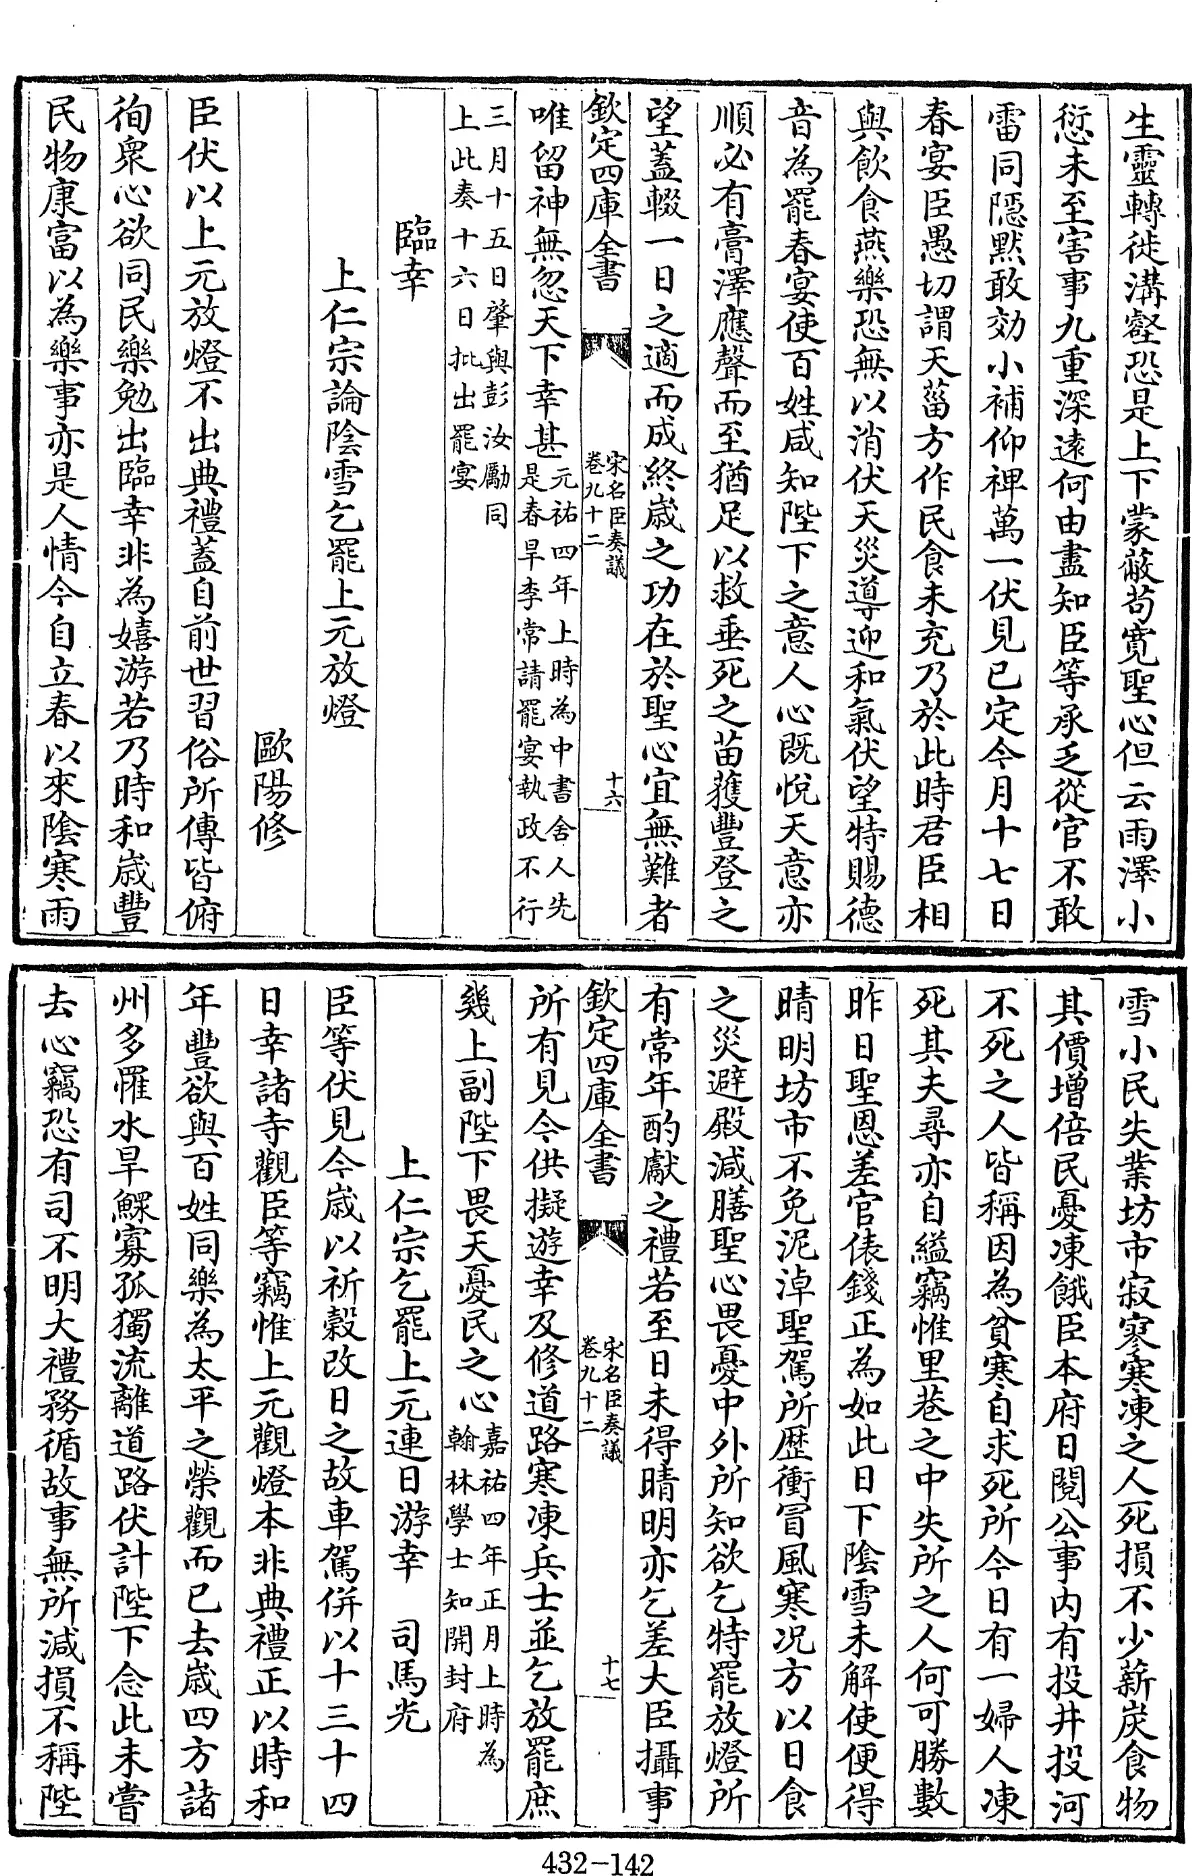 生靈轉徙溝壑恐是上下蒙蔽苟寛聖心但云雨澤小
愆未至害事九重深逺何由盡知臣等承乏從官不敢
雷同隠黙敢効小補仰禆萬一伏見已定今月十七日
春宴臣愚切謂天菑方作民食未充乃於此時君臣相
與飲食燕樂恐無以消伏天災導迎和氣伏望特賜德
音為罷春宴使百姓咸知陛下之意人心既悅天意亦
順必有膏澤應聲而至猶足以救垂死之苗獲豐登之
望蓋輟一日之適而成終歳之功在於聖心宜無難者
欽定四庫全書
宋名臣奏議
卷九十二
十六
唯留神無忽天下幸甚
元祐四年上時為中書舍人先
是春旱李常請罷宴執政不行
三月十五日肇與彭汝勵同
上此奏十六日批出罷宴
臨幸
上仁宗論陰雪乞罷上元放燈
歐陽修
臣伏以上元放燈不出典禮蓋自前世習俗所傳皆俯
徇衆心欲同民樂勉出臨幸非為嬉游若乃時和歳豐
民物康富以為樂事亦是人情今自立春以來陰寒雨
雪小民失業坊市寂寥寒凍之人死損不少薪炭食物
其價增倍民憂凍餓臣本府日閱公事内有投井投河
不死之人皆稱因為貧寒自求死所今日有一婦人凍
死其夫尋亦自縊竊惟里巷之中失所之人何可勝數
昨日聖恩差官俵錢正為如此日下陰雪未解使便得
晴明坊市不免泥淖聖駕所歴衝冒風寒况方以日食
之災避殿減膳聖心畏憂中外所知欲乞特罷放燈所
有常年酌獻之禮若至日未得晴明亦乞差大臣攝事
欽定四庫全書
宋名臣奏議
卷九十二
十七
所有見今供擬遊幸及修道路寒凍兵士並乞放罷庶
幾上副陛下畏天憂民之心
嘉祐四年正月上時為
翰林學士知開封府
上仁宗乞罷上元連日游幸 司馬光
臣等伏見今歳以祈穀改日之故車駕併以十三十四
日幸諸寺觀臣等竊惟上元觀燈本非典禮正以時和
年豐欲與百姓同樂為太平之榮觀而已去歳四方諸
州多罹水旱鰥寡孤獨流離道路伏計陛下念此未嘗
去心竊恐有司不明大禮務循故事無所減損不稱陛
432-142